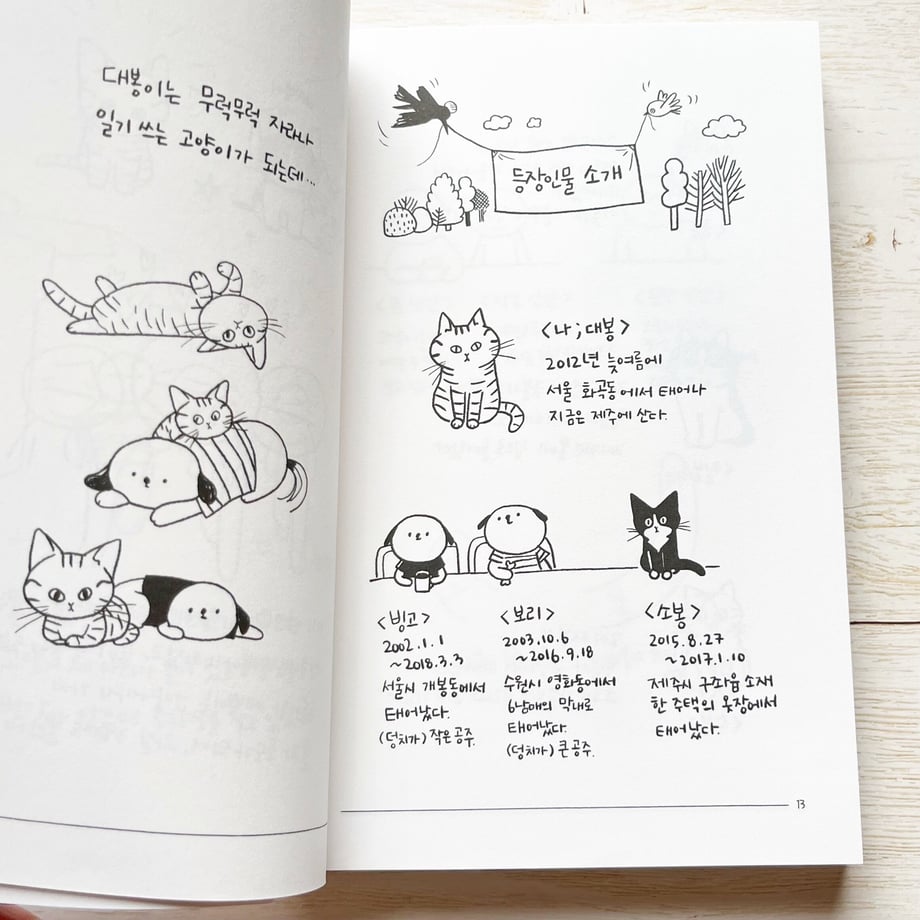 대봉이는 무럭무럭 자라나
일기 쓰는 고양이가 되는데...
등장인물 소개
<나; 대봉>
2012년 늦여름에
서울 화곡동에서 태어나
지금은 제주에 산다.
<빙고>
2002.1.1
~2018.3.3
서울시 개봉동에서
태어났다.
(덩치가) 작은 공주.
<보리>
2003.10.6
~2016.9.18
수원시 영화동에서
6남매의 막내로
태어났다.
(덩치가) 큰 공주.
<소봉>
2015.8.27
~2017.1.10
제주시 구좌읍 소재
한 주택의 옷장에서
태어났다.
13